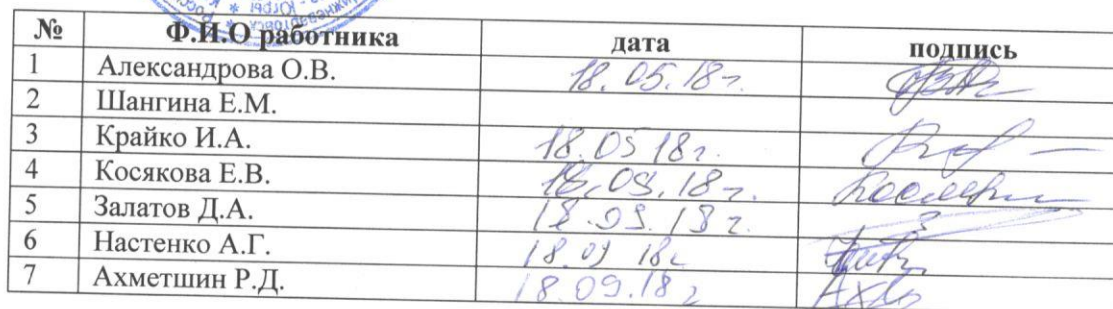 № Ф.И.О работника дата подпись
1 Александрова О.В. 18.05.18г.
2 Шангина Е.М.
3 Крайко И.А. 18.05 18г.
4 Косякова Е.В. 18.09.18г.
5 Залатов Д.А. 18.09.18г.
6 Настенко А.Г. 18 09 18г
7 Ахметшин Р.Д. 18.09.18г